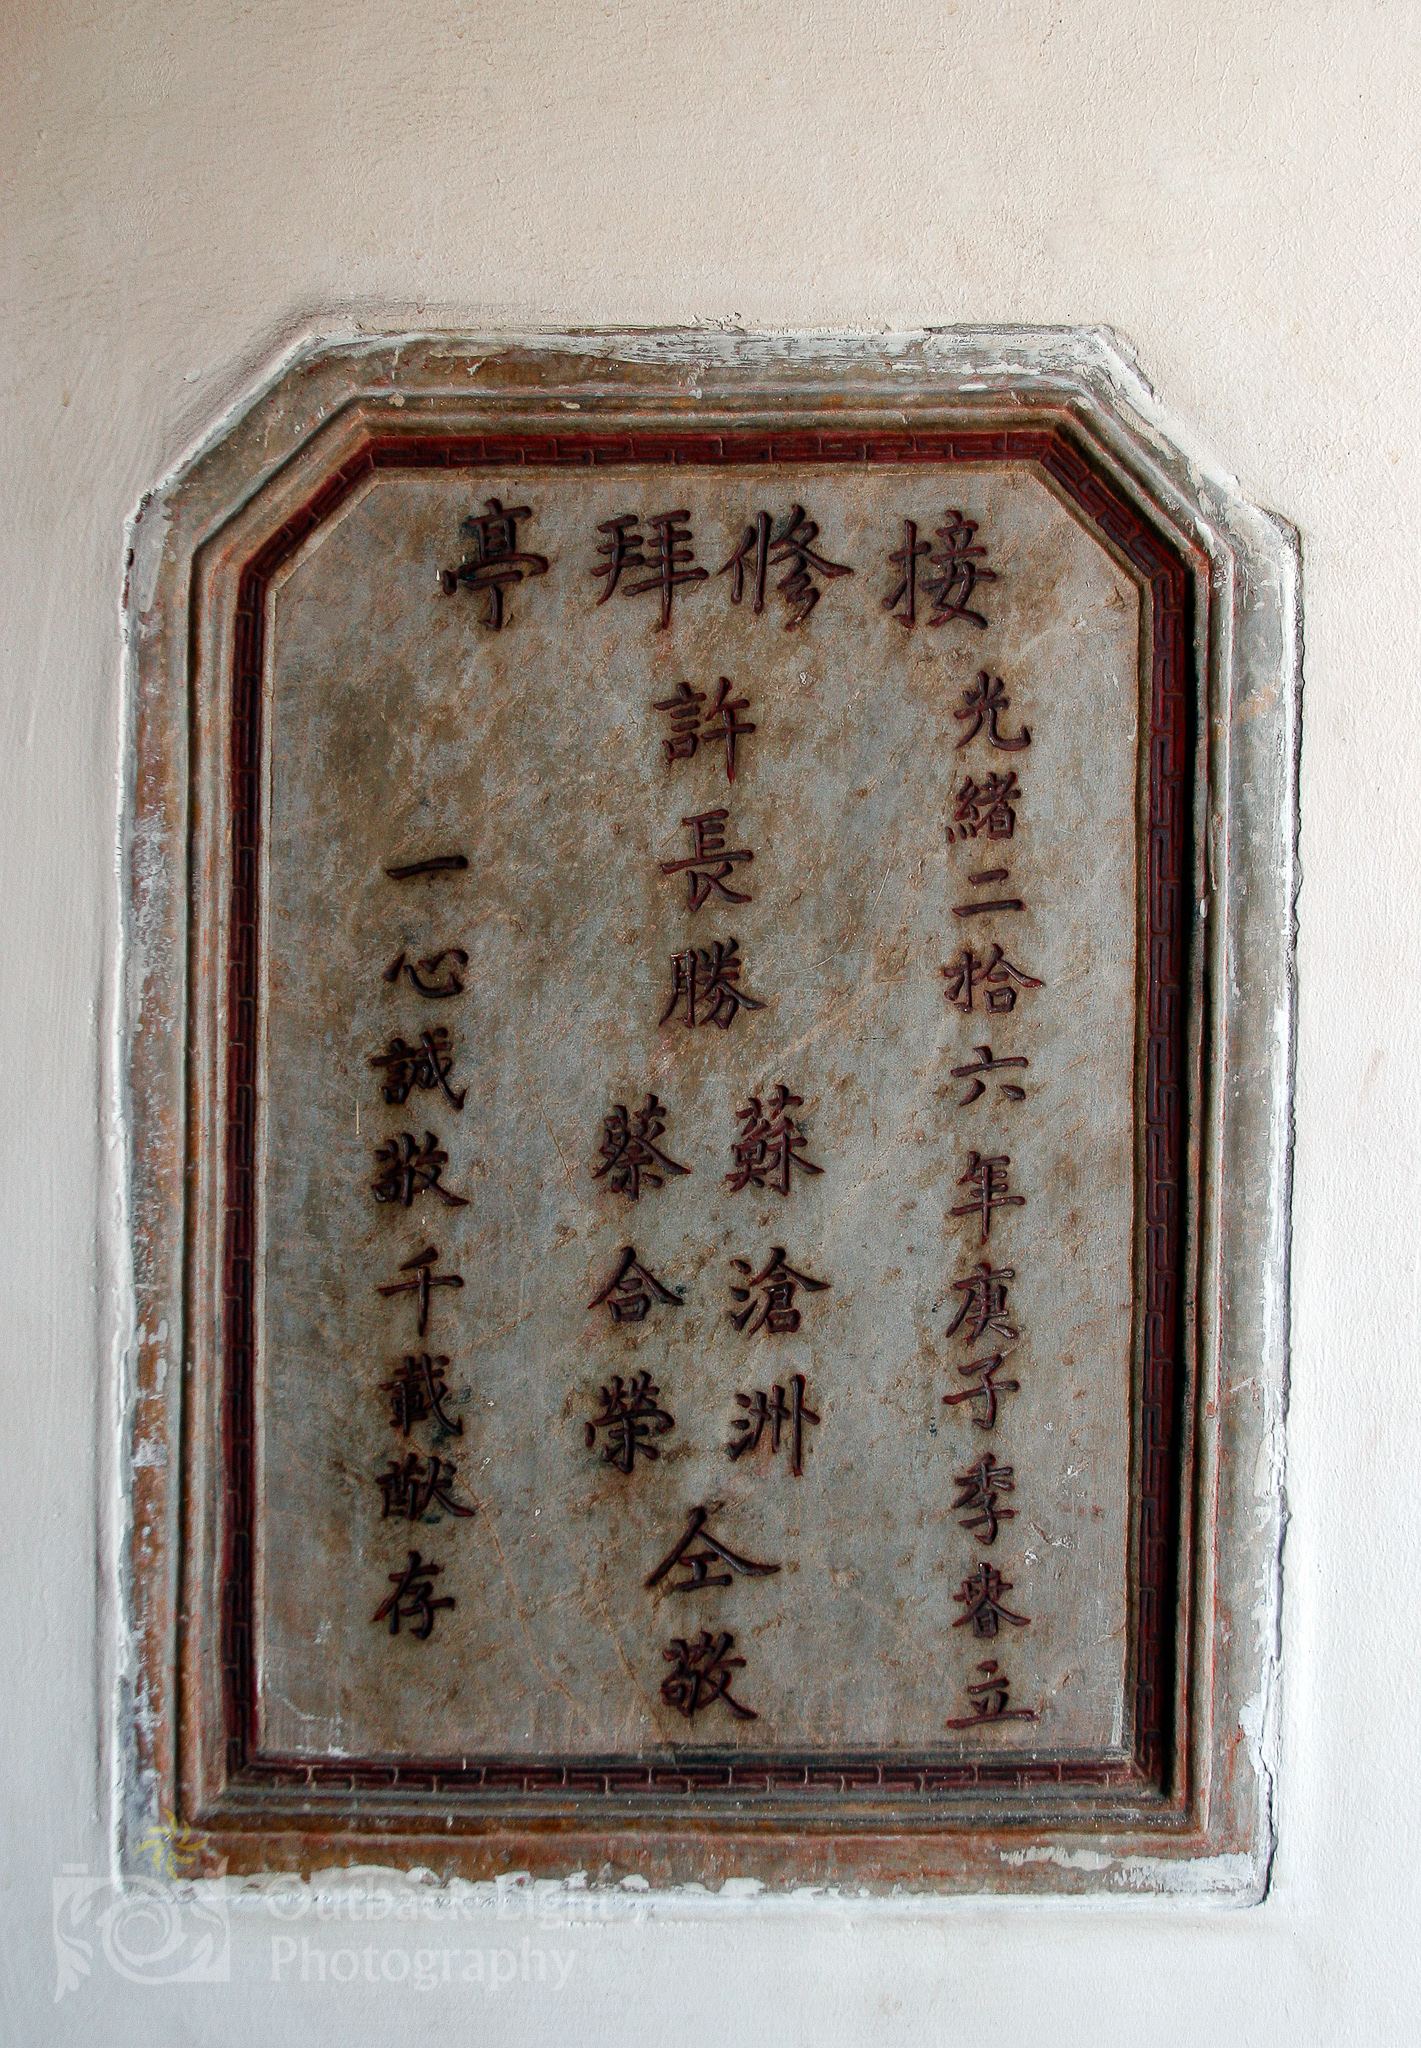 接修拜亭
光緒二拾六年庚子季春立
許長勝
蘇滄洲
蔡合榮
仝敬
一心誠敬千載猷存
Outback Light
Photography